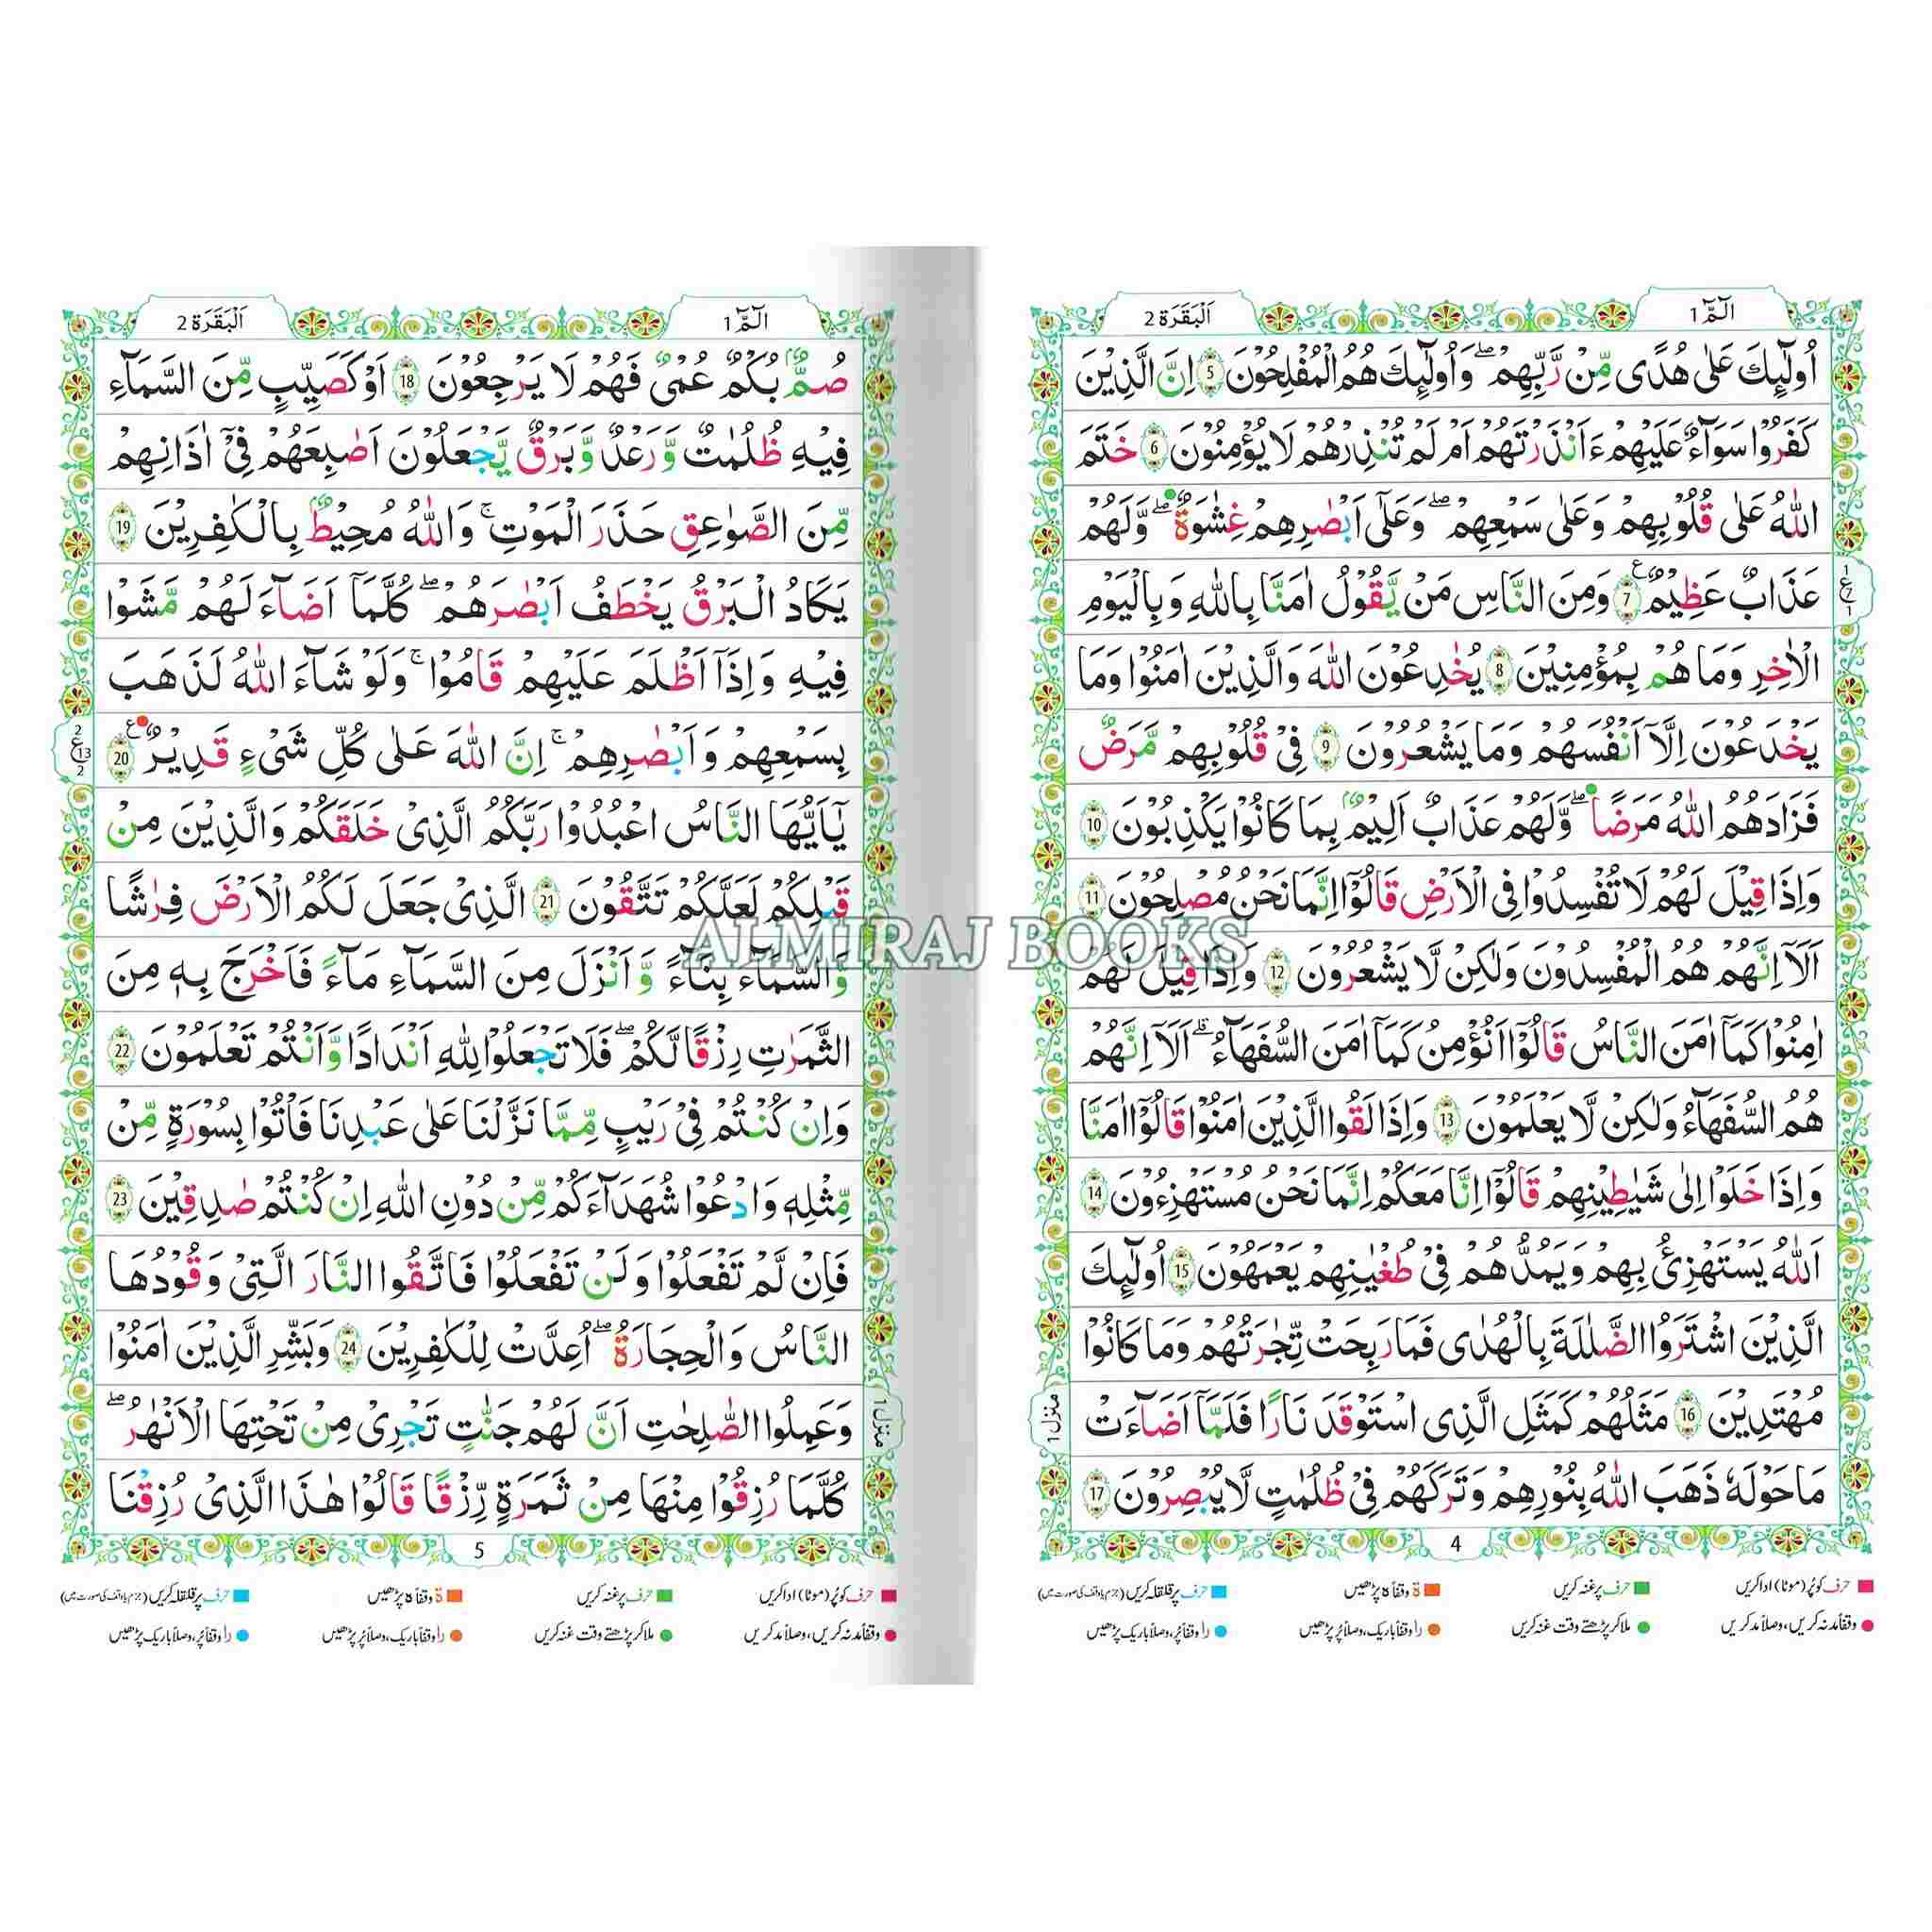 الٓمّٓ 1
اَلْبَقَرَة 2
اُولٰٓئِكَ عَلٰى هُدًى مِّنْ رَّبِّهِمْ ۖ وَاُولٰٓئِكَ هُمُ الْمُفْلِحُوْنَ 5 اِنَّ الَّذِيْنَ
كَفَرُوْا سَوَآءٌ عَلَيْهِمْ ءَاَنْذَرْتَهُمْ اَمْ لَمْ تُنْذِرْهُمْ لَا يُؤْمِنُوْنَ 6 خَتَمَ
اللّٰهُ عَلٰى قُلُوْبِهِمْ وَعَلٰى سَمْعِهِمْ ۖ وَعَلٰٓى اَبْصٰرِهِمْ غِشٰوَةٌ ۖ وَّلَهُمْ
عَذَابٌ عَظِيْمٌ 7 ع وَمِنَ النَّاسِ مَنْ يَّقُوْلُ اٰمَنَّا بِاللّٰهِ وَبِالْيَوْمِ
1
ع 7
1
الْاٰخِرِ وَمَا هُمْ بِمُؤْمِنِيْنَ 8 يُخٰدِعُوْنَ اللّٰهَ وَالَّذِيْنَ اٰمَنُوْا وَمَا
يَخْدَعُوْنَ اِلَّآ اَنْفُسَهُمْ وَمَا يَشْعُرُوْنَ 9 فِيْ قُلُوْبِهِمْ مَّرَضٌ
فَزَادَهُمُ اللّٰهُ مَرَضًا ۖ وَّلَهُمْ عَذَابٌ اَلِيْمٌ بِمَا كَانُوْا يَكْذِبُوْنَ 10
وَاِذَا قِيْلَ لَهُمْ لَا تُفْسِدُوْا فِى الْاَرْضِ قَالُوْٓا اِنَّمَا نَحْنُ مُصْلِحُوْنَ 11
اَلَآ اِنَّهُمْ هُمُ الْمُفْسِدُوْنَ وَلٰكِنْ لَّا يَشْعُرُوْنَ 12 وَاِذَا قِيْلَ لَهُمْ
اٰمِنُوْا كَمَآ اٰمَنَ النَّاسُ قَالُوْٓا اَنُؤْمِنُ كَمَآ اٰمَنَ السُّفَهَآءُ ۗ اَلَآ اِنَّهُمْ
هُمُ السُّفَهَآءُ وَلٰكِنْ لَّا يَعْلَمُوْنَ 13 وَاِذَا لَقُوا الَّذِيْنَ اٰمَنُوْا قَالُوْٓا اٰمَنَّا
وَاِذَا خَلَوْا اِلٰى شَيٰطِيْنِهِمْ قَالُوْٓا اِنَّا مَعَكُمْ اِنَّمَا نَحْنُ مُسْتَهْزِءُوْنَ 14
اَللّٰهُ يَسْتَهْزِئُ بِهِمْ وَيَمُدُّهُمْ فِيْ طُغْيٰنِهِمْ يَعْمَهُوْنَ 15 اُولٰٓئِكَ
الَّذِيْنَ اشْتَرَوُا الضَّلٰلَةَ بِالْهُدٰى فَمَا رَبِحَتْ تِّجٰرَتُهُمْ وَمَا كَانُوْا
مُهْتَدِيْنَ 16 مَثَلُهُمْ كَمَثَلِ الَّذِى اسْتَوْقَدَ نَارًا فَلَمَّآ اَضَآءَتْ
مَا حَوْلَهٗ ذَهَبَ اللّٰهُ بِنُوْرِهِمْ وَتَرَكَهُمْ فِيْ ظُلُمٰتٍ لَّا يُبْصِرُوْنَ 17
منزل 1
4
حرف کو پُر (موٹا) ادا کریں
حرف پر غنہ کریں
ة وقفاً ہ پڑھیں
حرف پر قلقلہ کریں (جزم یا وقف کی صورت میں)
وقفاً مد نہ کریں، وصلاً مد کریں
ملا کر پڑھتے وقت غنہ کریں
را وقفاً باریک، وصلاً پُر پڑھیں
را وقفاً پُر، وصلاً باریک پڑھیں
الٓمّٓ 1
اَلْبَقَرَة 2
صُمٌّۢ بُكْمٌ عُمْيٌ فَهُمْ لَا يَرْجِعُوْنَ 18 اَوْ كَصَيِّبٍ مِّنَ السَّمَآءِ
فِيْهِ ظُلُمٰتٌ وَّرَعْدٌ وَّبَرْقٌ يَّجْعَلُوْنَ اَصٰبِعَهُمْ فِيْٓ اٰذَانِهِمْ
مِّنَ الصَّوٰعِقِ حَذَرَ الْمَوْتِ ۚ وَاللّٰهُ مُحِيْطٌۢ بِالْكٰفِرِيْنَ 19
يَكَادُ الْبَرْقُ يَخْطَفُ اَبْصٰرَهُمْ ۖ كُلَّمَآ اَضَآءَ لَهُمْ مَّشَوْا
فِيْهِ وَاِذَآ اَظْلَمَ عَلَيْهِمْ قَامُوْا ۚ وَلَوْ شَآءَ اللّٰهُ لَذَهَبَ
بِسَمْعِهِمْ وَاَبْصٰرِهِمْ ۚ اِنَّ اللّٰهَ عَلٰى كُلِّ شَىْءٍ قَدِيْرٌ 20 ع
2
ع 13
2
يٰٓاَيُّهَا النَّاسُ اعْبُدُوْا رَبَّكُمُ الَّذِيْ خَلَقَكُمْ وَالَّذِيْنَ مِنْ
قَبْلِكُمْ لَعَلَّكُمْ تَتَّقُوْنَ 21 الَّذِيْ جَعَلَ لَكُمُ الْاَرْضَ فِرٰشًا
وَّالسَّمَآءَ بِنَآءً وَّاَنْزَلَ مِنَ السَّمَآءِ مَآءً فَاَخْرَجَ بِهٖ مِنَ
الثَّمَرٰتِ رِزْقًا لَّكُمْ ۖ فَلَا تَجْعَلُوْا لِلّٰهِ اَنْدَادًا وَّاَنْتُمْ تَعْلَمُوْنَ 22
وَاِنْ كُنْتُمْ فِيْ رَيْبٍ مِّمَّا نَزَّلْنَا عَلٰى عَبْدِنَا فَاْتُوْا بِسُوْرَةٍ مِّنْ
مِّثْلِهٖ وَادْعُوْا شُهَدَآءَكُمْ مِّنْ دُوْنِ اللّٰهِ اِنْ كُنْتُمْ صٰدِقِيْنَ 23
فَاِنْ لَّمْ تَفْعَلُوْا وَلَنْ تَفْعَلُوْا فَاتَّقُوا النَّارَ الَّتِيْ وَقُوْدُهَا
النَّاسُ وَالْحِجَارَةُ ۖ اُعِدَّتْ لِلْكٰفِرِيْنَ 24 وَبَشِّرِ الَّذِيْنَ اٰمَنُوْا
وَعَمِلُوا الصّٰلِحٰتِ اَنَّ لَهُمْ جَنّٰتٍ تَجْرِيْ مِنْ تَحْتِهَا الْاَنْهٰرُ ۖ
كُلَّمَا رُزِقُوْا مِنْهَا مِنْ ثَمَرَةٍ رِّزْقًا قَالُوْا هٰذَا الَّذِيْ رُزِقْنَا
منزل 1
5
حرف کو پُر (موٹا) ادا کریں
حرف پر غنہ کریں
ة وقفاً ہ پڑھیں
حرف پر قلقلہ کریں (جزم یا وقف کی صورت میں)
وقفاً مد نہ کریں، وصلاً مد کریں
ملا کر پڑھتے وقت غنہ کریں
را وقفاً باریک، وصلاً پُر پڑھیں
را وقفاً پُر، وصلاً باریک پڑھیں
ALMIRAJ BOOKS